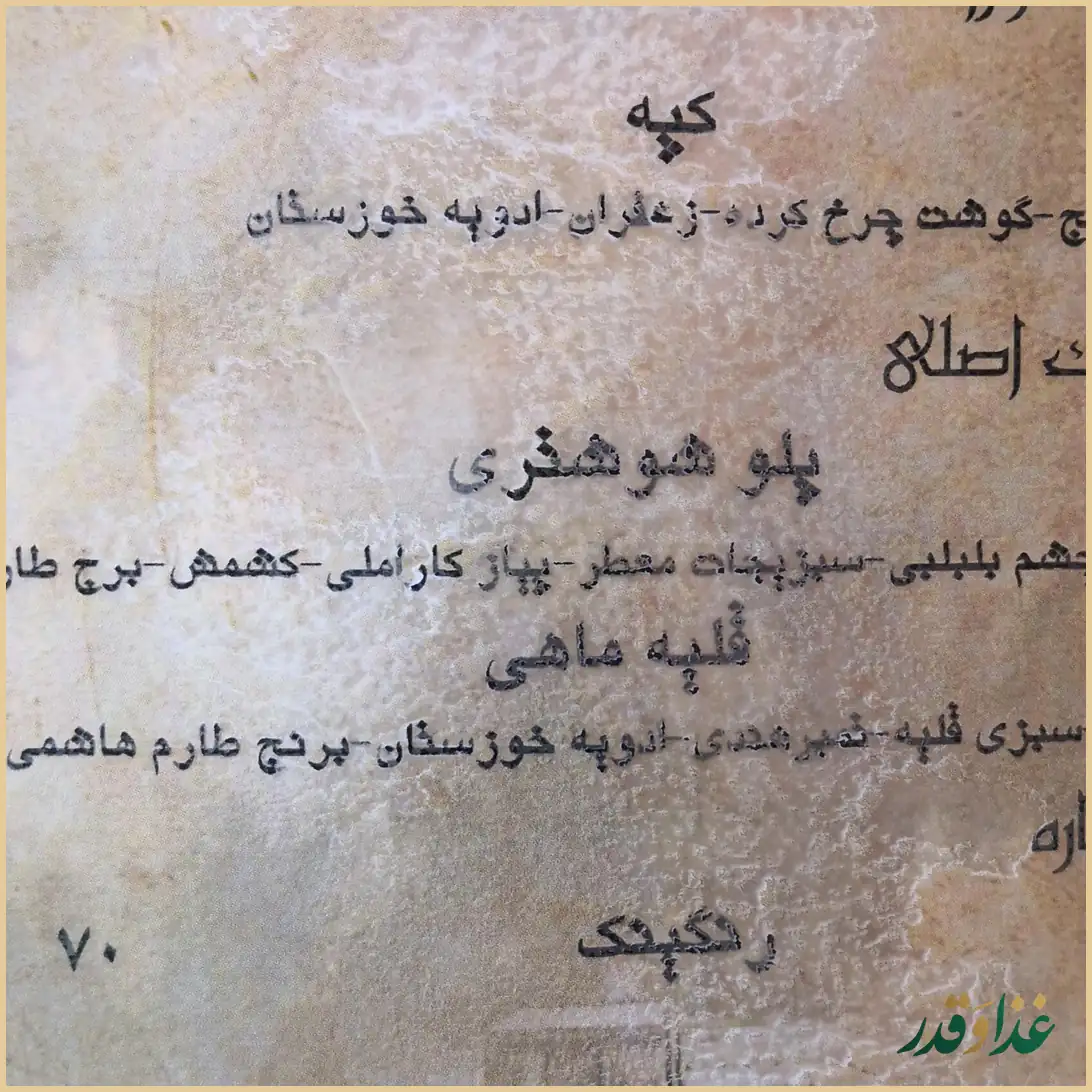 کپه
گوشت چرخ کرده-زعفران-ادویه خوزستان
اصلی
پلو شوشتری
چشم بلبلی-سبزیجات معطر-پیاز کاراملی-کشمش-برج طار
قلیه ماهی
سبزی قلیه-تمبرهندی-ادویه خوزستان-برنج طارم هاشمی
رنگینک
۷۰
غذا و قدر